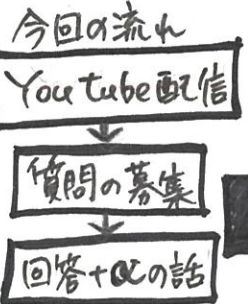 今回の流れ
YouTube配信
質問の募集
回答+αの話